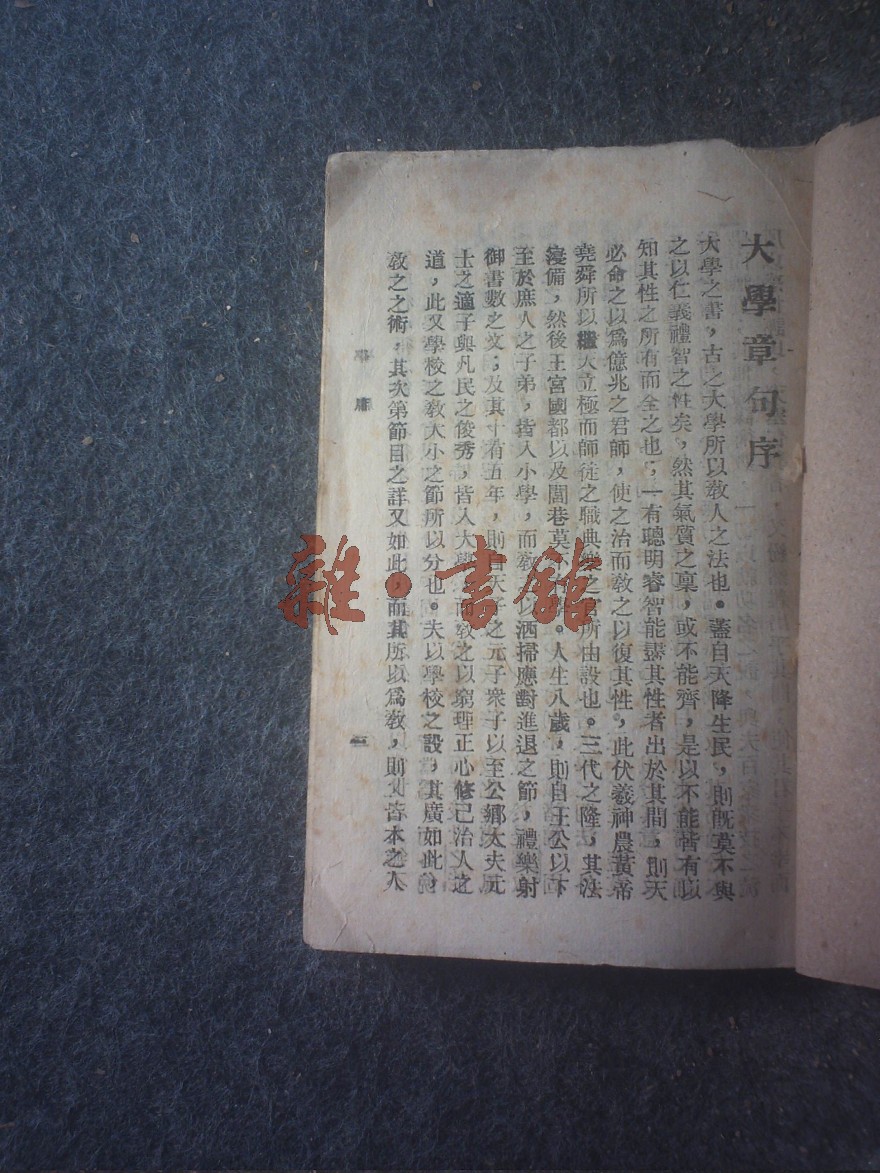 大學章句序
大學之書，古之大學所以敎人之法也。蓋自天降生民，則旣莫不與
之以仁義禮智之性矣，然其氣質之稟，或不能齊，是以不能皆有以
知其性之所有而全之也；一有聰明睿智能盡其性者出於其間，則天
必命之以爲億兆之君師，使之治而敎之以復其性，此伏羲神農黃帝
堯舜所以繼天立極而師徒之職典樂之官所由設也。三代之隆，其法
寖備，然後王宮國都以及閭巷莫不有學。人生八歲，則自王公以下
至於庶人之子弟，皆入小學，而敎之以洒掃應對進退之節，禮樂射
御書數之文；及其十有五年，則自天子之元子衆子以至公卿大夫元
士之適子與凡民之俊秀，皆入大學，而敎之以窮理正心修己治人之
道，此又學校之敎大小之節所以分也。夫以學校之設，其廣如此，
敎之之術，其次第節目之詳又如此，而其所以爲敎，則又皆本之人
雜·書館